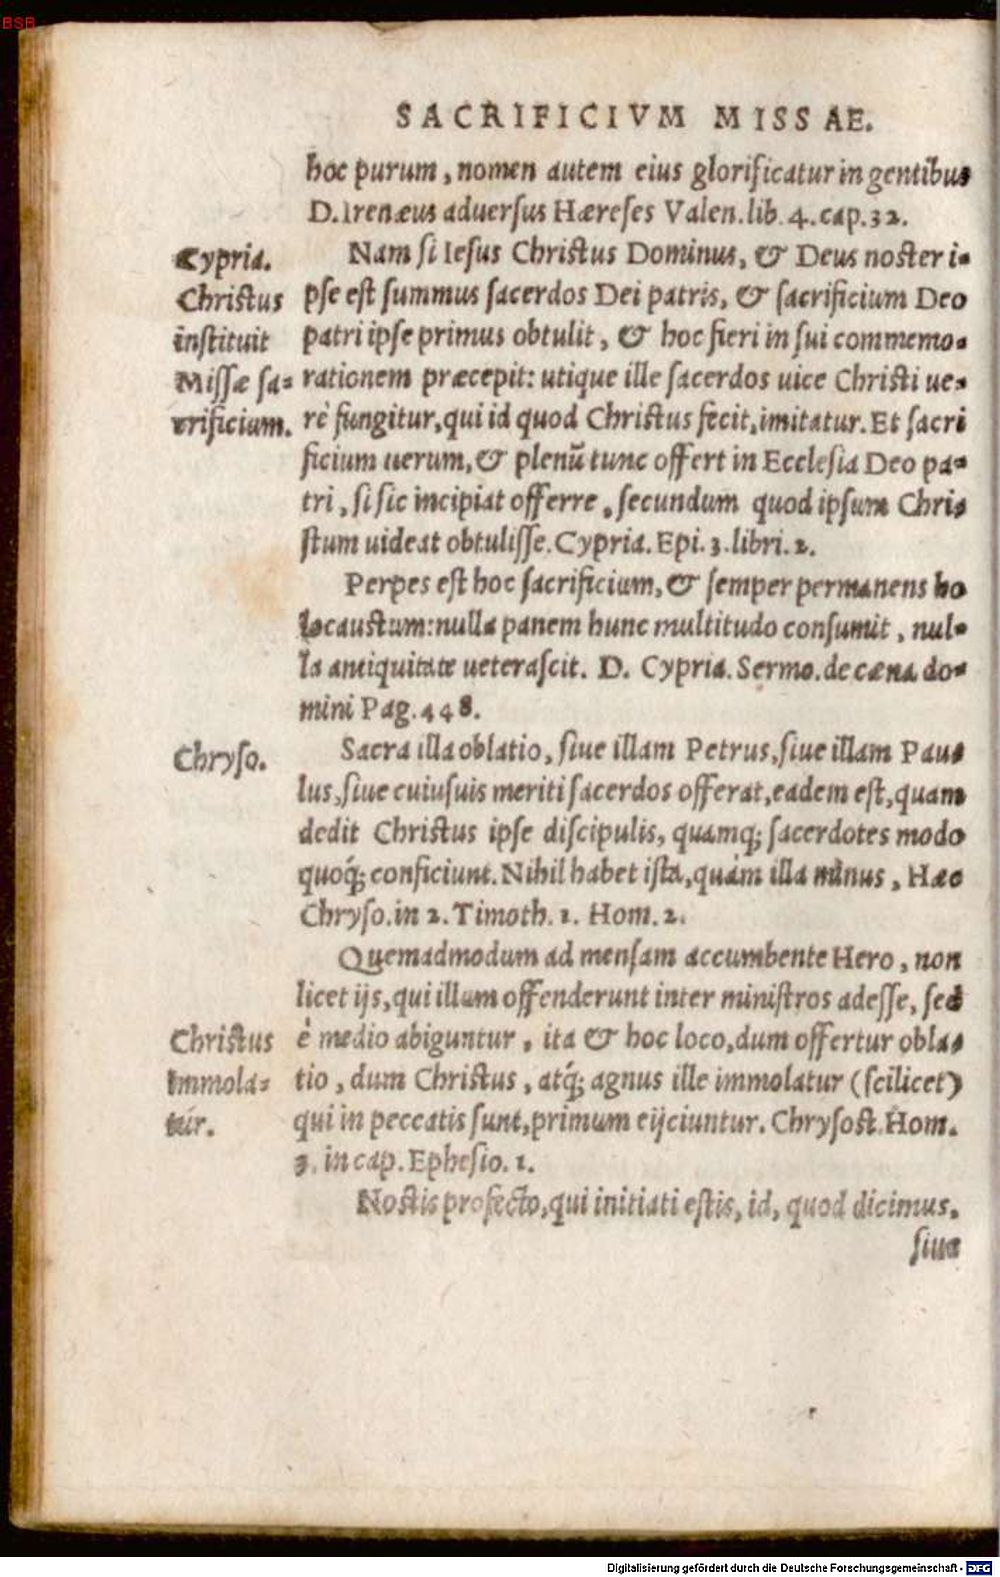 BSB
SACRIFICIVM MISSAE.
hoc purum, nomen autem eius glorificatur in gentibus
D. Irenæus aduersus Hæreses Valen. lib. 4. cap. 32.
Cypria.
Christus
instituit
Missæ sa-
crificium.
Nam si Iesus Christus Dominus, & Deus noster i-
pse est summus sacerdos Dei patris, & sacrificium Deo
patri ipse primus obtulit, & hoc fieri in sui commemo-
rationem præcepit: utique ille sacerdos uice Christi ue-
rè fungitur, qui id quod Christus fecit, imitatur. Et sacri
ficium uerum, & plenũ tunc offert in Ecclesia Deo pa-
tri, si sic incipiat offerre, secundum quod ipsum Chri-
stum uideat obtulisse. Cypria. Epi. 3. libri. 2.
Perpes est hoc sacrificium, & semper permanens ho
locaustum: nulla panem hunc multitudo consumit, nul-
la antiquitate ueterascit. D. Cypria. Sermo. de cæna do-
mini Pag. 448.
Chryso.
Sacra illa oblatio, siue illam Petrus, siue illam Pau-
lus, siue cuiusuis meriti sacerdos offerat, eadem est, quam
dedit Christus ipse discipulis, quamq; sacerdotes modo
quoq́; conficiunt. Nihil habet ista, quàm illa minus, Hæc
Chryso. in 2. Timoth. 1. Hom. 2.
Quemadmodum ad mensam accumbente Hero, non
licet ijs, qui illum offenderunt inter ministros adesse, sed
è medio abiguntur, ita & hoc loco, dum offertur obla-
tio, dum Christus, atq́; agnus ille immolatur (scilicet)
qui in peccatis sunt, primum eijciuntur. Chrysost. Hom.
3. in cap. Ephesio. 1.
Christus
immola-
tur.
Nostis profecto, qui initiati estis, id, quod dicimus.
siue
Digitalisierung gefördert durch die Deutsche Forschungsgemeinschaft - DFG